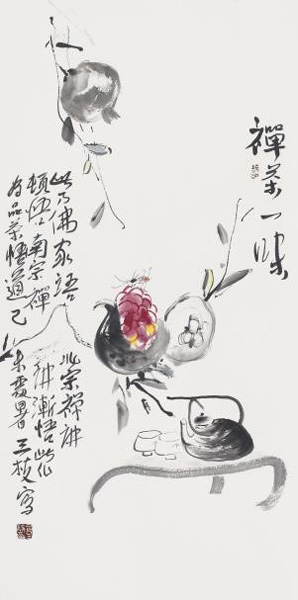 禪茶一味
此乃佛家語
頓悟南宗禪
為品茶悟道己
北宗禪講
講漸悟此作
未霞暑
三枝寫